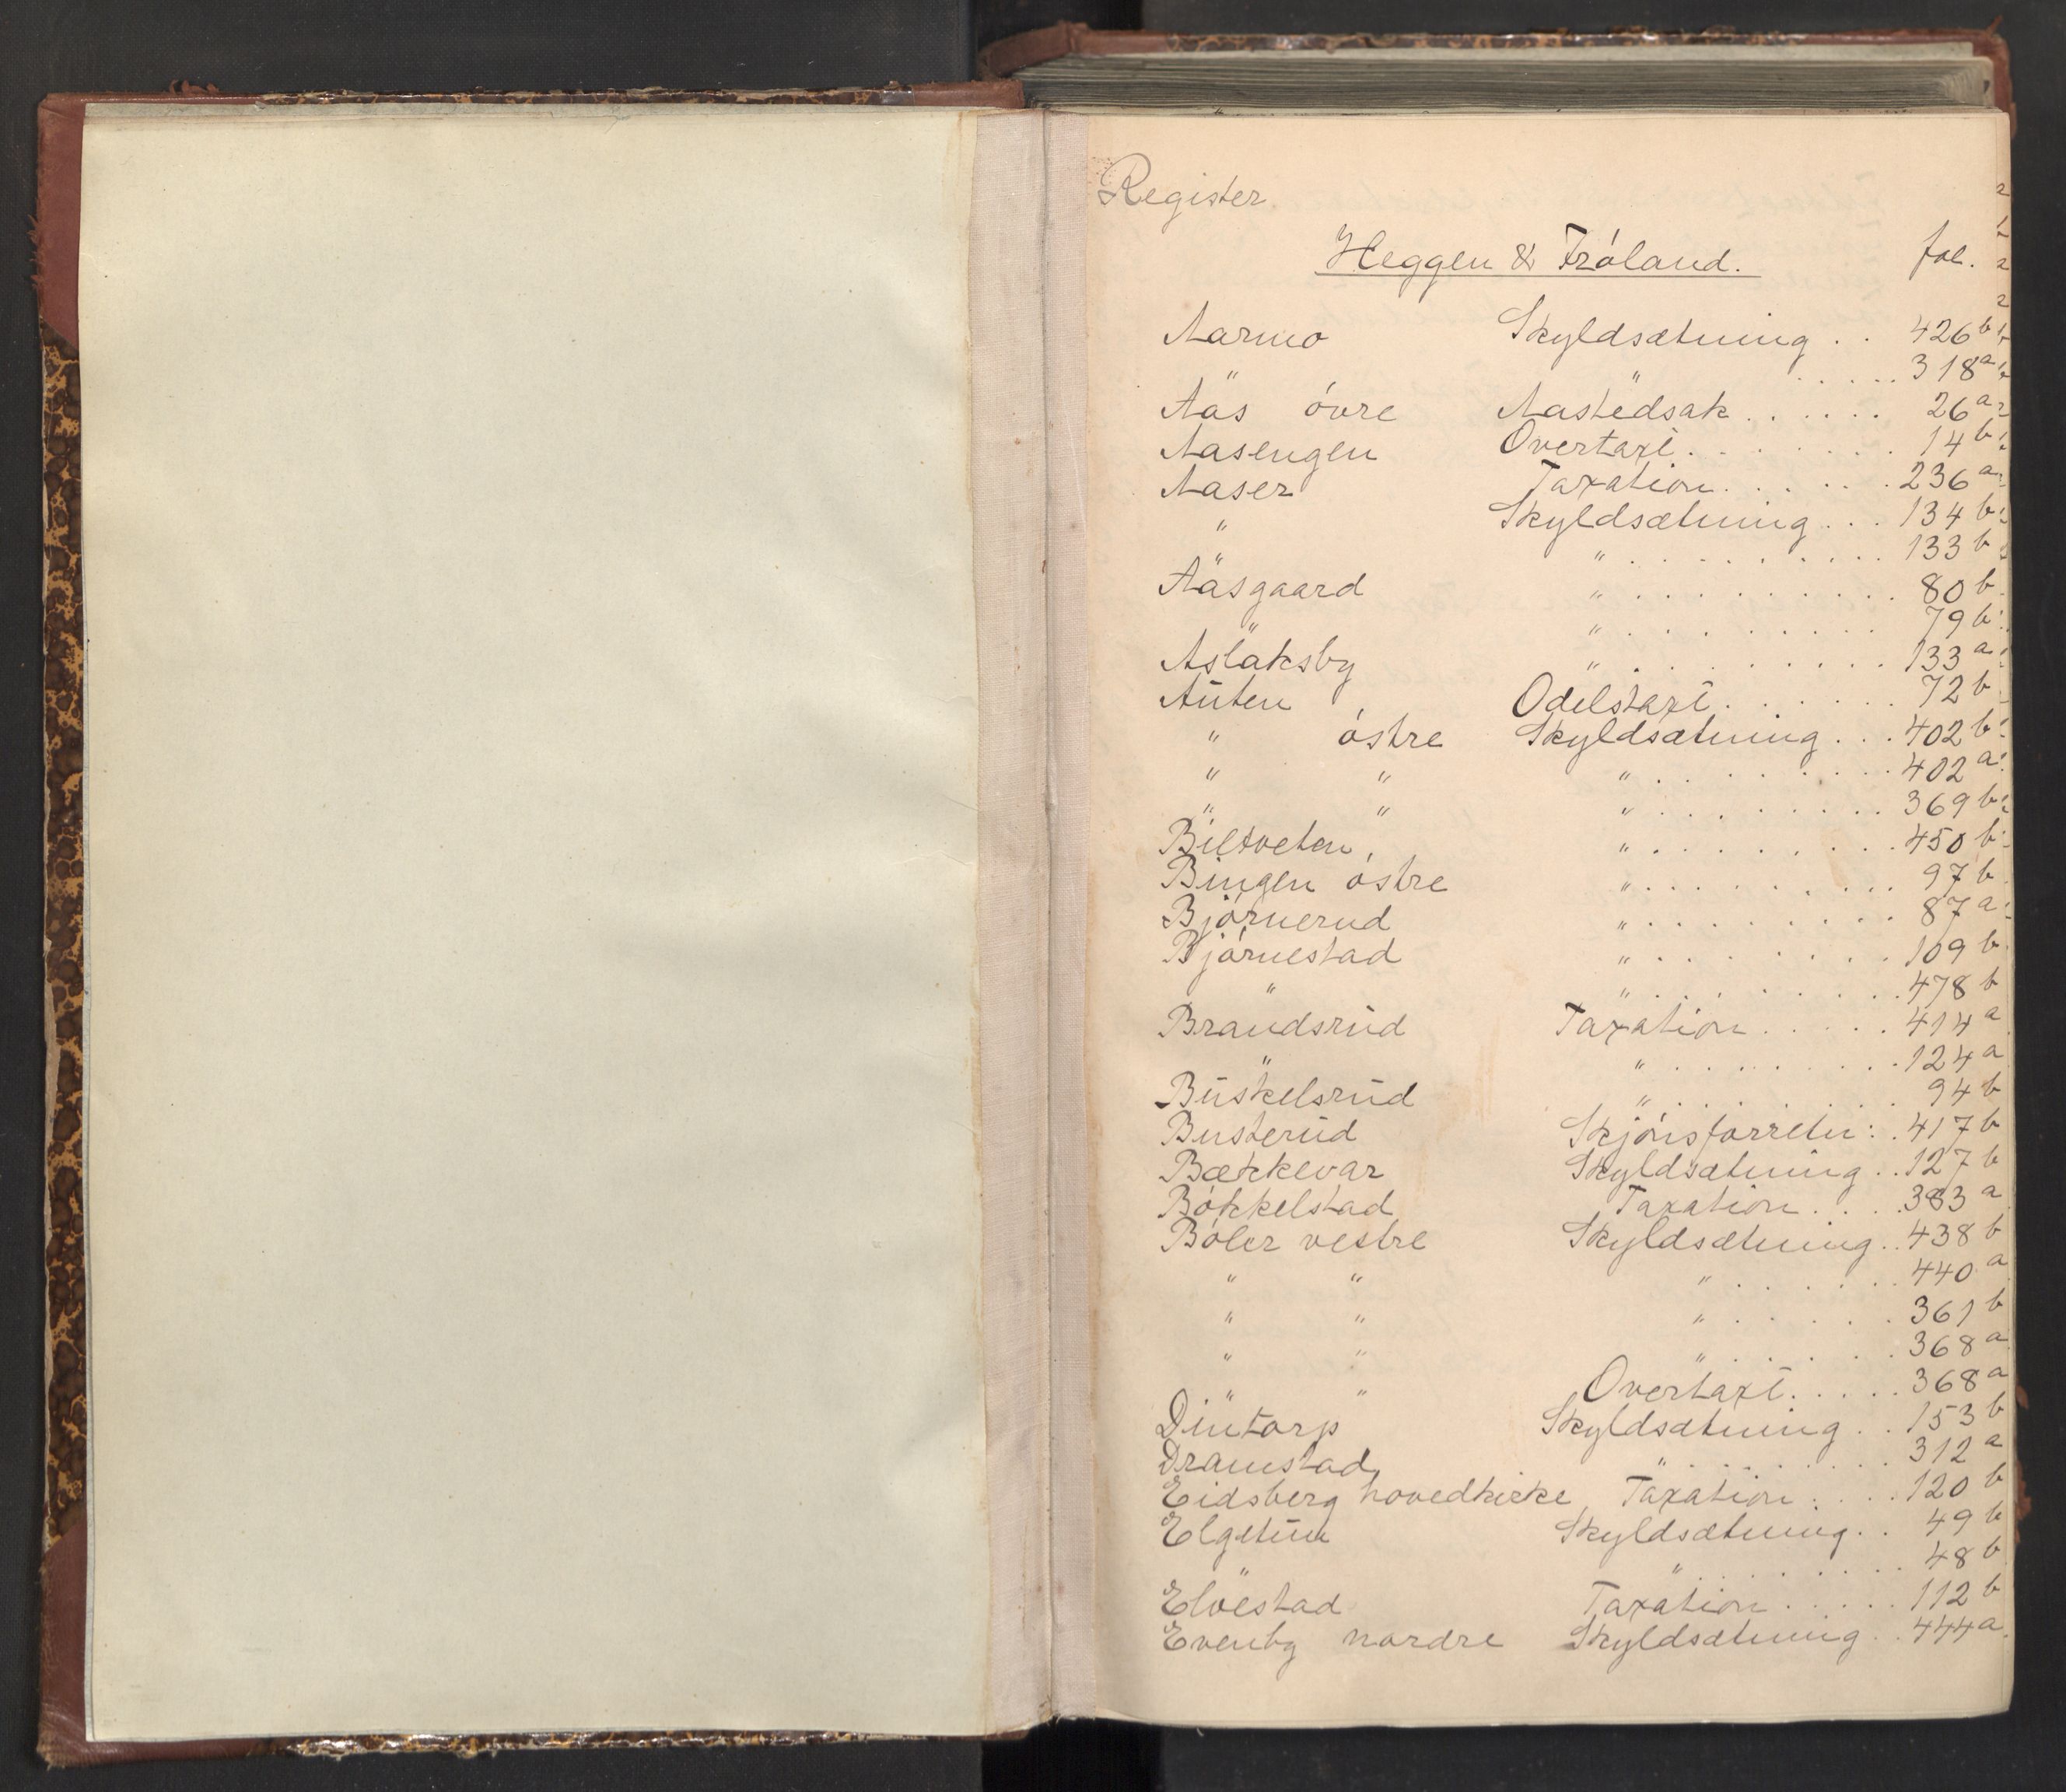 Register
Heggen & Fróland. fol.
Aarmo Skyldsætning . . 426 b
" " . . . . . 318 a
Aas óvre Aastedsak . . . . . . 26 a
Aasengen Overtaxt . . . . . . . 14 b
Aaser Taxation . . . . . . 236 a
" Skyldsætning . . . 134 b
" . . . . . . . . . . 133 b
Aasgaard " . . . . . . . . . . 80 b
" " . . . . . . . . . 79 b
Aslaksby " . . . . . . . . . . 133 a
Auten Odelstaxt . . . . . . . 72 b
" óstre Skyldsætning . . . 402 b
" " " . . . . . . . . . 402 a
" " " . . . . . . . . . 369 b
Biltveten " . . . . . . . . . 450 b
Bingen óstre " . . . . . . . . . . 97 b
Bjórnerud " . . . . . . . . . 87 a
Bjórnestad " . . . . . . . . 109 b
" " . . . . . . . . . 478 b
Brandsrud Taxation . . . . . 414 a
" " . . . . . . . . . 124 a
Buskelsrud " . . . . . . . . . 94 b
Busterud Skjónsforretn: . 417 b
Bækkevar Skyldsætning . . 127 b
Bókkelstad Taxation . . . . 383 a
Bóler vestre Skyldsætning . . 438 b
" " " . . . . . . 440 a
" " " . . . . . . 361 b
" " " . . . . . . 368 a
" " Overtaxt . . . . . 368 a
Dintorp Skyldsætning . . 153 b
Dramstad " . . . . . . . . . 312 a
Eidsberg hovedkirke Taxation . . . . 120 b
Elgetun Skyldsætning . . 49 b
" " . . . . . . . . . 48 b
Elvestad Taxation . . . . . 112 b
Evenby nordre Skyldsætning . . 444 a